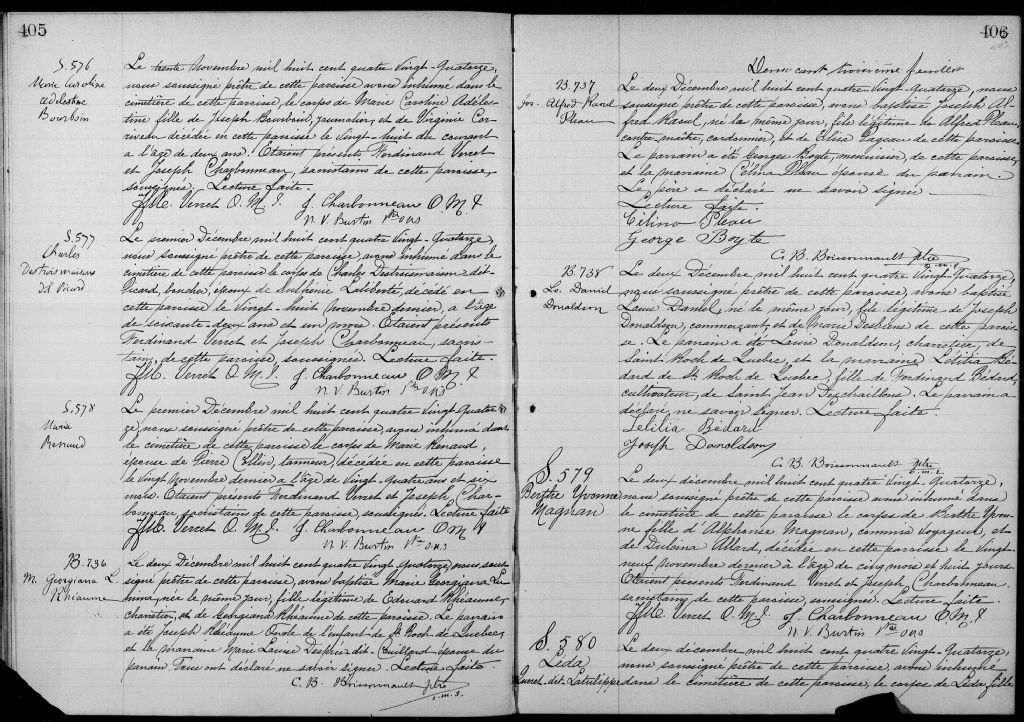 405
S. 576
Marie Caroline
Adelestine
Bourboin
Le trente Novembre mil huit cent quatre vingt-Quatorze,
nous soussigné prêtre de cette paroisse avons inhumé dans le
cimetière de cette paroisse, le corps de Marie Caroline Adéles-
tine fille de Joseph Bourboin, journalier, et de Virginie Cor-
riveau décédée en cette paroisse le vingt-huit du courant
a l'age de deux ans. Etaient présents Ferdinand Verret
et Joseph Charbonneau, sacristains de cette paroisse,
soussignés. Lecture faite.
Verret O. M. I. J. Charbonneau O. M. I
N. V. Burtin Ptre O M I
S. 577
Charles
Destroismaisons
dit Picard
Le premier Décembre mil huit cent quatre vingt-Quatorze,
nous soussigné prêtre de cette paroisse avons inhumé dans le
cimetière de cette paroisse le corps de Charles Destroismaisons dit-
Picard, boucher, époux de Sulfénie Laliberté, décédé en
cette paroisse le vingt-huit Novembre dernier, a l'âge
de soixante-deux ans et un mois. Etaient présents
Ferdinand Verret et Joseph Charbonneau, sacris-
tains, de cette paroisse, soussignés. Lecture faite.
Verret O. M. I. J. Charbonneau O M I
N. V. Burtin Ptre O M I
S. 578
Marie
Renaud
Le premier Décembre mil huit cent quatre vingt-Quator-
ze, nous soussigné prêtre de cette paroisse, avons inhumé dans
le cimetière de cette paroisse le corps de Marie Renaud,
épouse de Pierre Collin, tanneur, décédée en cette paroisse
le vingt Novembre dernier a l'âge de vingt-quatre ans et six
mois. Etaient présents Ferdinand Verret et Joseph Char-
bonneau sacristains de cette paroisse, soussignés. Lecture faite
Verret O. M. I. J. Charbonneau O M I
N. V. Burtin Ptre O M I
B. 736
M. Georgiana L.
Rhéaume
Le deux Décembre mil huit cent quatre vingt Quatorze, nous sous-
signé prêtre de cette paroisse, avons baptisé Marie Georgiana
née le même jour, fille légitime de Edouard Rhéaume,
charretier, et de Georgiana Rhéaume de cette paroisse. Le parrain
a été Joseph Rhéaume Oncle de l'enfant de St Roch de Quebec,
et la marraine Marie Louise Després dit-Guillard épouse du
parrain Tous ont déclaré ne savoir signer. Lecture faite.
C. B. Boissonnault ptre
o. m. i.
406
Deux cent troisième feuillet
B. 737
Jos. Alfred Raoul
Pleau
Le deux Décembre mil huit cent quatre vingt-Quatorze, nous
soussigné prêtre de cette paroisse, avons baptisé Joseph Al-
fred Raoul, né le même jour, fils légitime de Alfred Pleau,
contre-maître, cordonnier, et de Eliza Pageau de cette paroisse
Le parrain a été Georges Boyte, menuisier, de cette paroisse,
et la marraine Célina Pleau épouse du parrain.
Le père a déclaré ne savoir signer.
Lecture faite.
Célina Pleau
George Boyte
C. B. Boissonnault ptre
o. m. i.
B. 738
Ls. Daniel
Donaldson
Le deux Décembre mil huit cent quatre vingt-Quatorze,
nous soussigné prêtre de cette paroisse, avons baptisé
Louis Daniel, né le même jour, fils légitime de Joseph
Donaldson, commerçant, et de Marie Desbiens de cette parois-
se. Le parrain a été Louis Donaldson, charretier, de
Saint-Roch de Quebec, et la marraine Letitia Bé-
dard de St. Roch de Quebec, fille de Ferdinand Bédard,
cultivateur, de Saint Jean Deschaillons. Le parrain a
déclaré ne savoir signer. Lecture faite.
Letitia Bédard
Joseph Donaldson
C. B. Boissonnault ptre
o. m. i.
S. 579
Berthe Yvonne
Magnan
Le deux décembre mil huit cent quatre vingt Quatorze,
nous soussigné prêtre de cette paroisse avons inhumé dans
le cimetière de cette paroisse le corps de Berthe Yvon-
ne fille d'Alphonse Magnan, commis voyageur, et
de Dulcina Allard, décédée en cette paroisse le vingt-
neuf novembre dernier à l'âge de cinq mois et huit jours.
Etaient presents Ferdinand Verret et Joseph Charbonneau
sacristains de cette paroisse, soussignés. Lecture faite.
Verret O. M. I. J. Charbonneau O M I
N. V. Burtin Ptre O M I
S. 580
Léda
Quenet-dit-Latulippe
Le deux décembre mil huit cent quatre vingt Quatorze,
nous soussigné prêtre de cette paroisse, avons inhumé
dans le cimetière de cette paroisse, le corps de Léda, fille